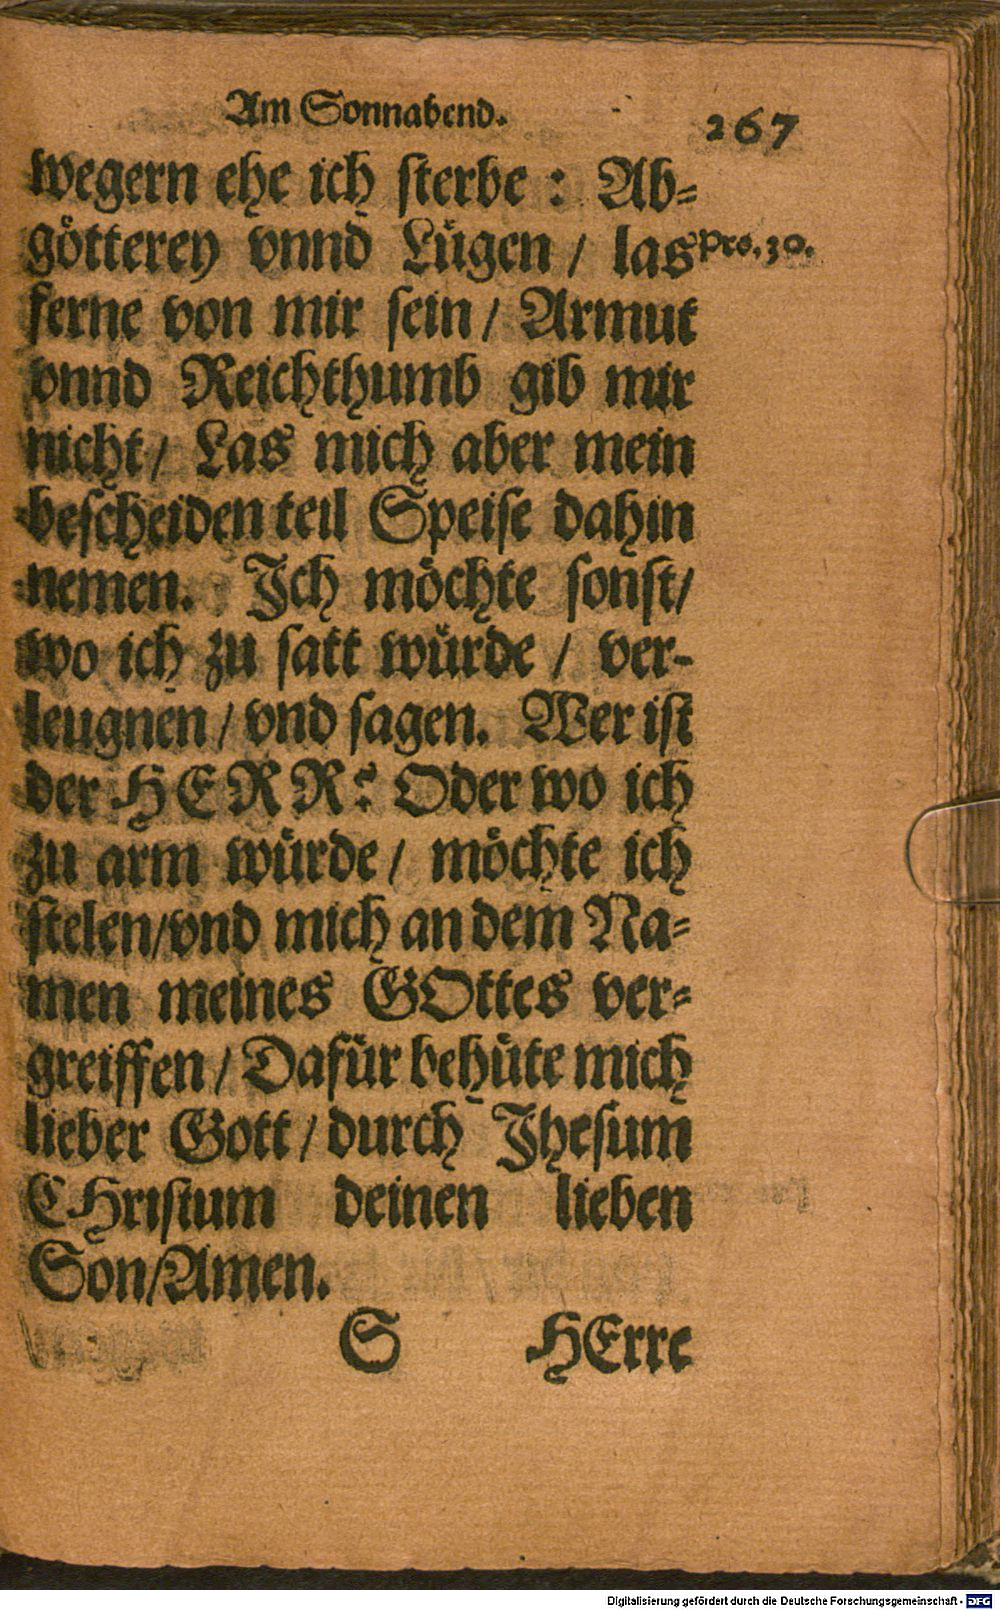 Am Sonnabend. 267
wegern ehe ich sterbe : Ab⸗
götterey vnnd Lügen / las Pro. 30.
ferne von mir sein / Armut
vnnd Reichthumb gib mir
nicht / Las mich aber mein
bescheiden teil Speise dahin
nemen. Ich möchte sonst /
wo ich zu satt würde / ver⸗
leugnen / vnd sagen. Wer ist
der HERR? Oder wo ich
zu arm würde / möchte ich
stelen / vnd mich an dem Na⸗
men meines GOttes ver⸗
greiffen / Dafür behüte mich
lieber Gott / durch Jhesum
CHristum deinen lieben
Son / Amen.
S HErre
Digitalisierung gefördert durch die Deutsche Forschungsgemeinschaft - DFG